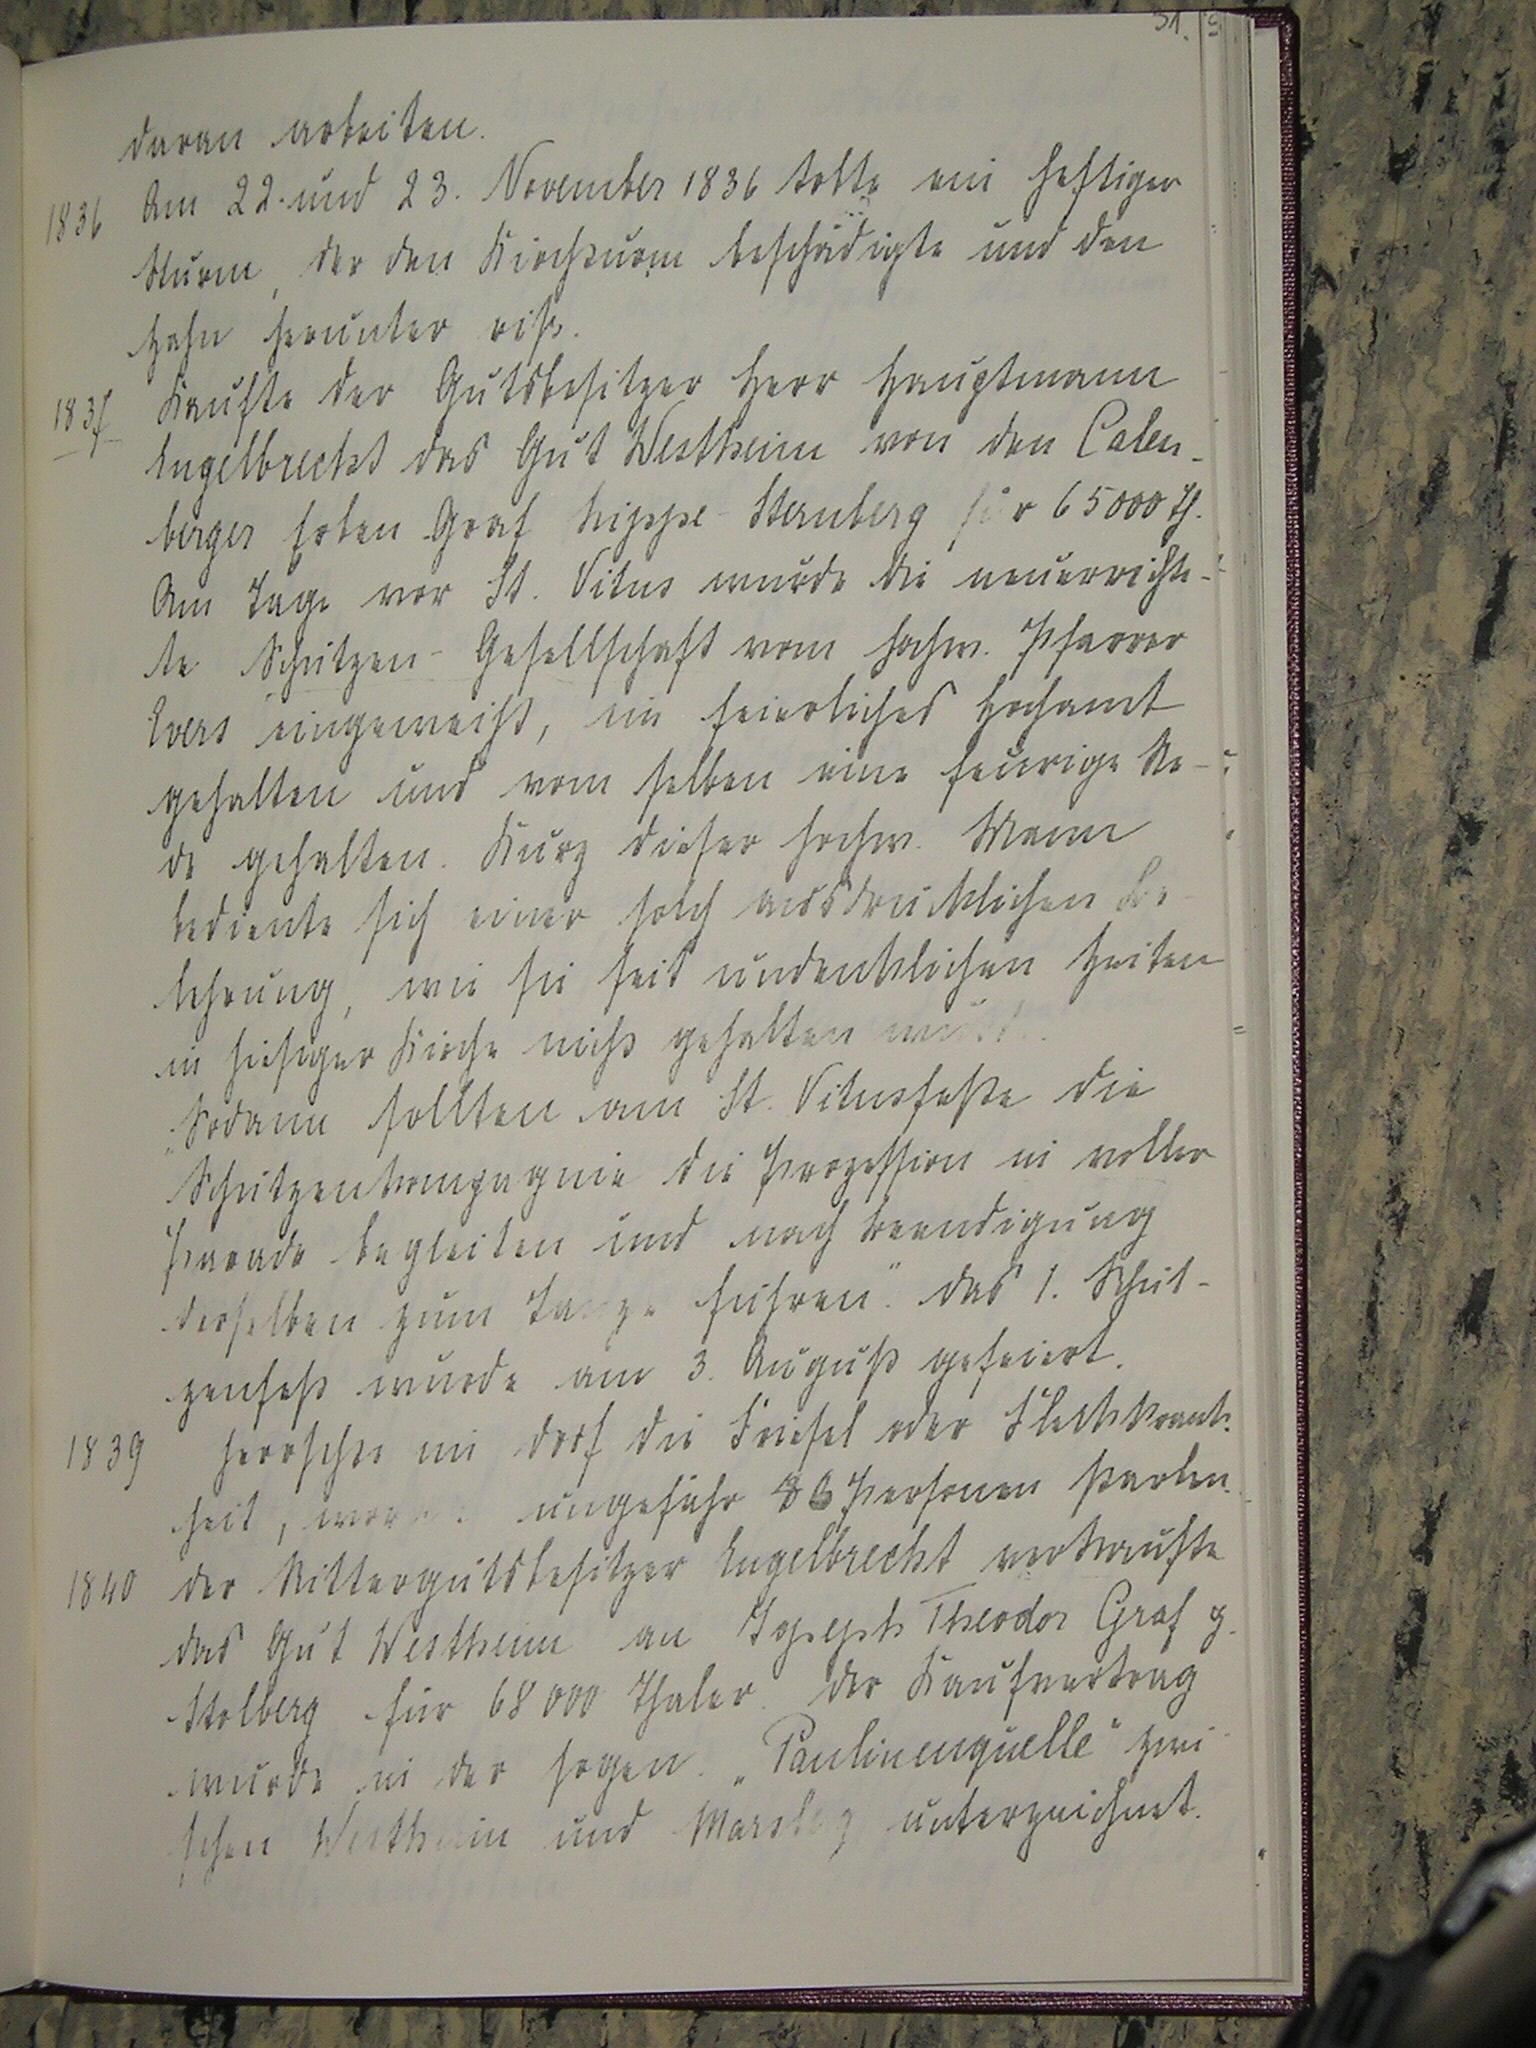 51.
daran arbeiten.
1836 Am 22. und 23. November 1836 tobte ein heftiger
Sturm, der den Kirchturm beschädigte und den
Hahn herunter riß.
1837 Kaufte der Gutsbesitzer Herr Hauptmann
Engelbrecht das Gut Westheim von den Calen-
berger Erben Graf Lippe-Sternberg für 65000 Th.
Am Tage vor St. Vitus wurde die neuerrichte-
te Schützen-Gesellschaft vom hochw. Pfarrer
Evers eingeweiht, ein feierliches Hochamt
gehalten und vom selben eine feurige Re-
de gehalten. Kurz dieser hochw. Mann
bediente sich einer solch ausdrücklichen Be-
lehrung, wie sie seit undenklichen Zeiten
in hiesiger Kirche nicht gehalten wurde.
„Sodann sollten am St. Vitusfeste die
Schützenkompagnie die Prozession in voller
Parade begleiten und nach Beendigung
derselben zum Tanze führen." Das 1. Schüt-
zenfest wurde am 3. August gefeiert.
1839 herrschte im Dorf die Friesel oder Fleckkrank-
heit, ungefähr Personen starben.
1840 Der Rittergutsbesitzer Engelbrecht verkaufte
das Gut Westheim an Joseph Theodor Graf z.
Stolberg für 68000 Thaler. Der Kaufvertrag
wurde in der sogen. „Paulinenquelle" zwi-
schen Westheim und Marsberg unterzeichnet.